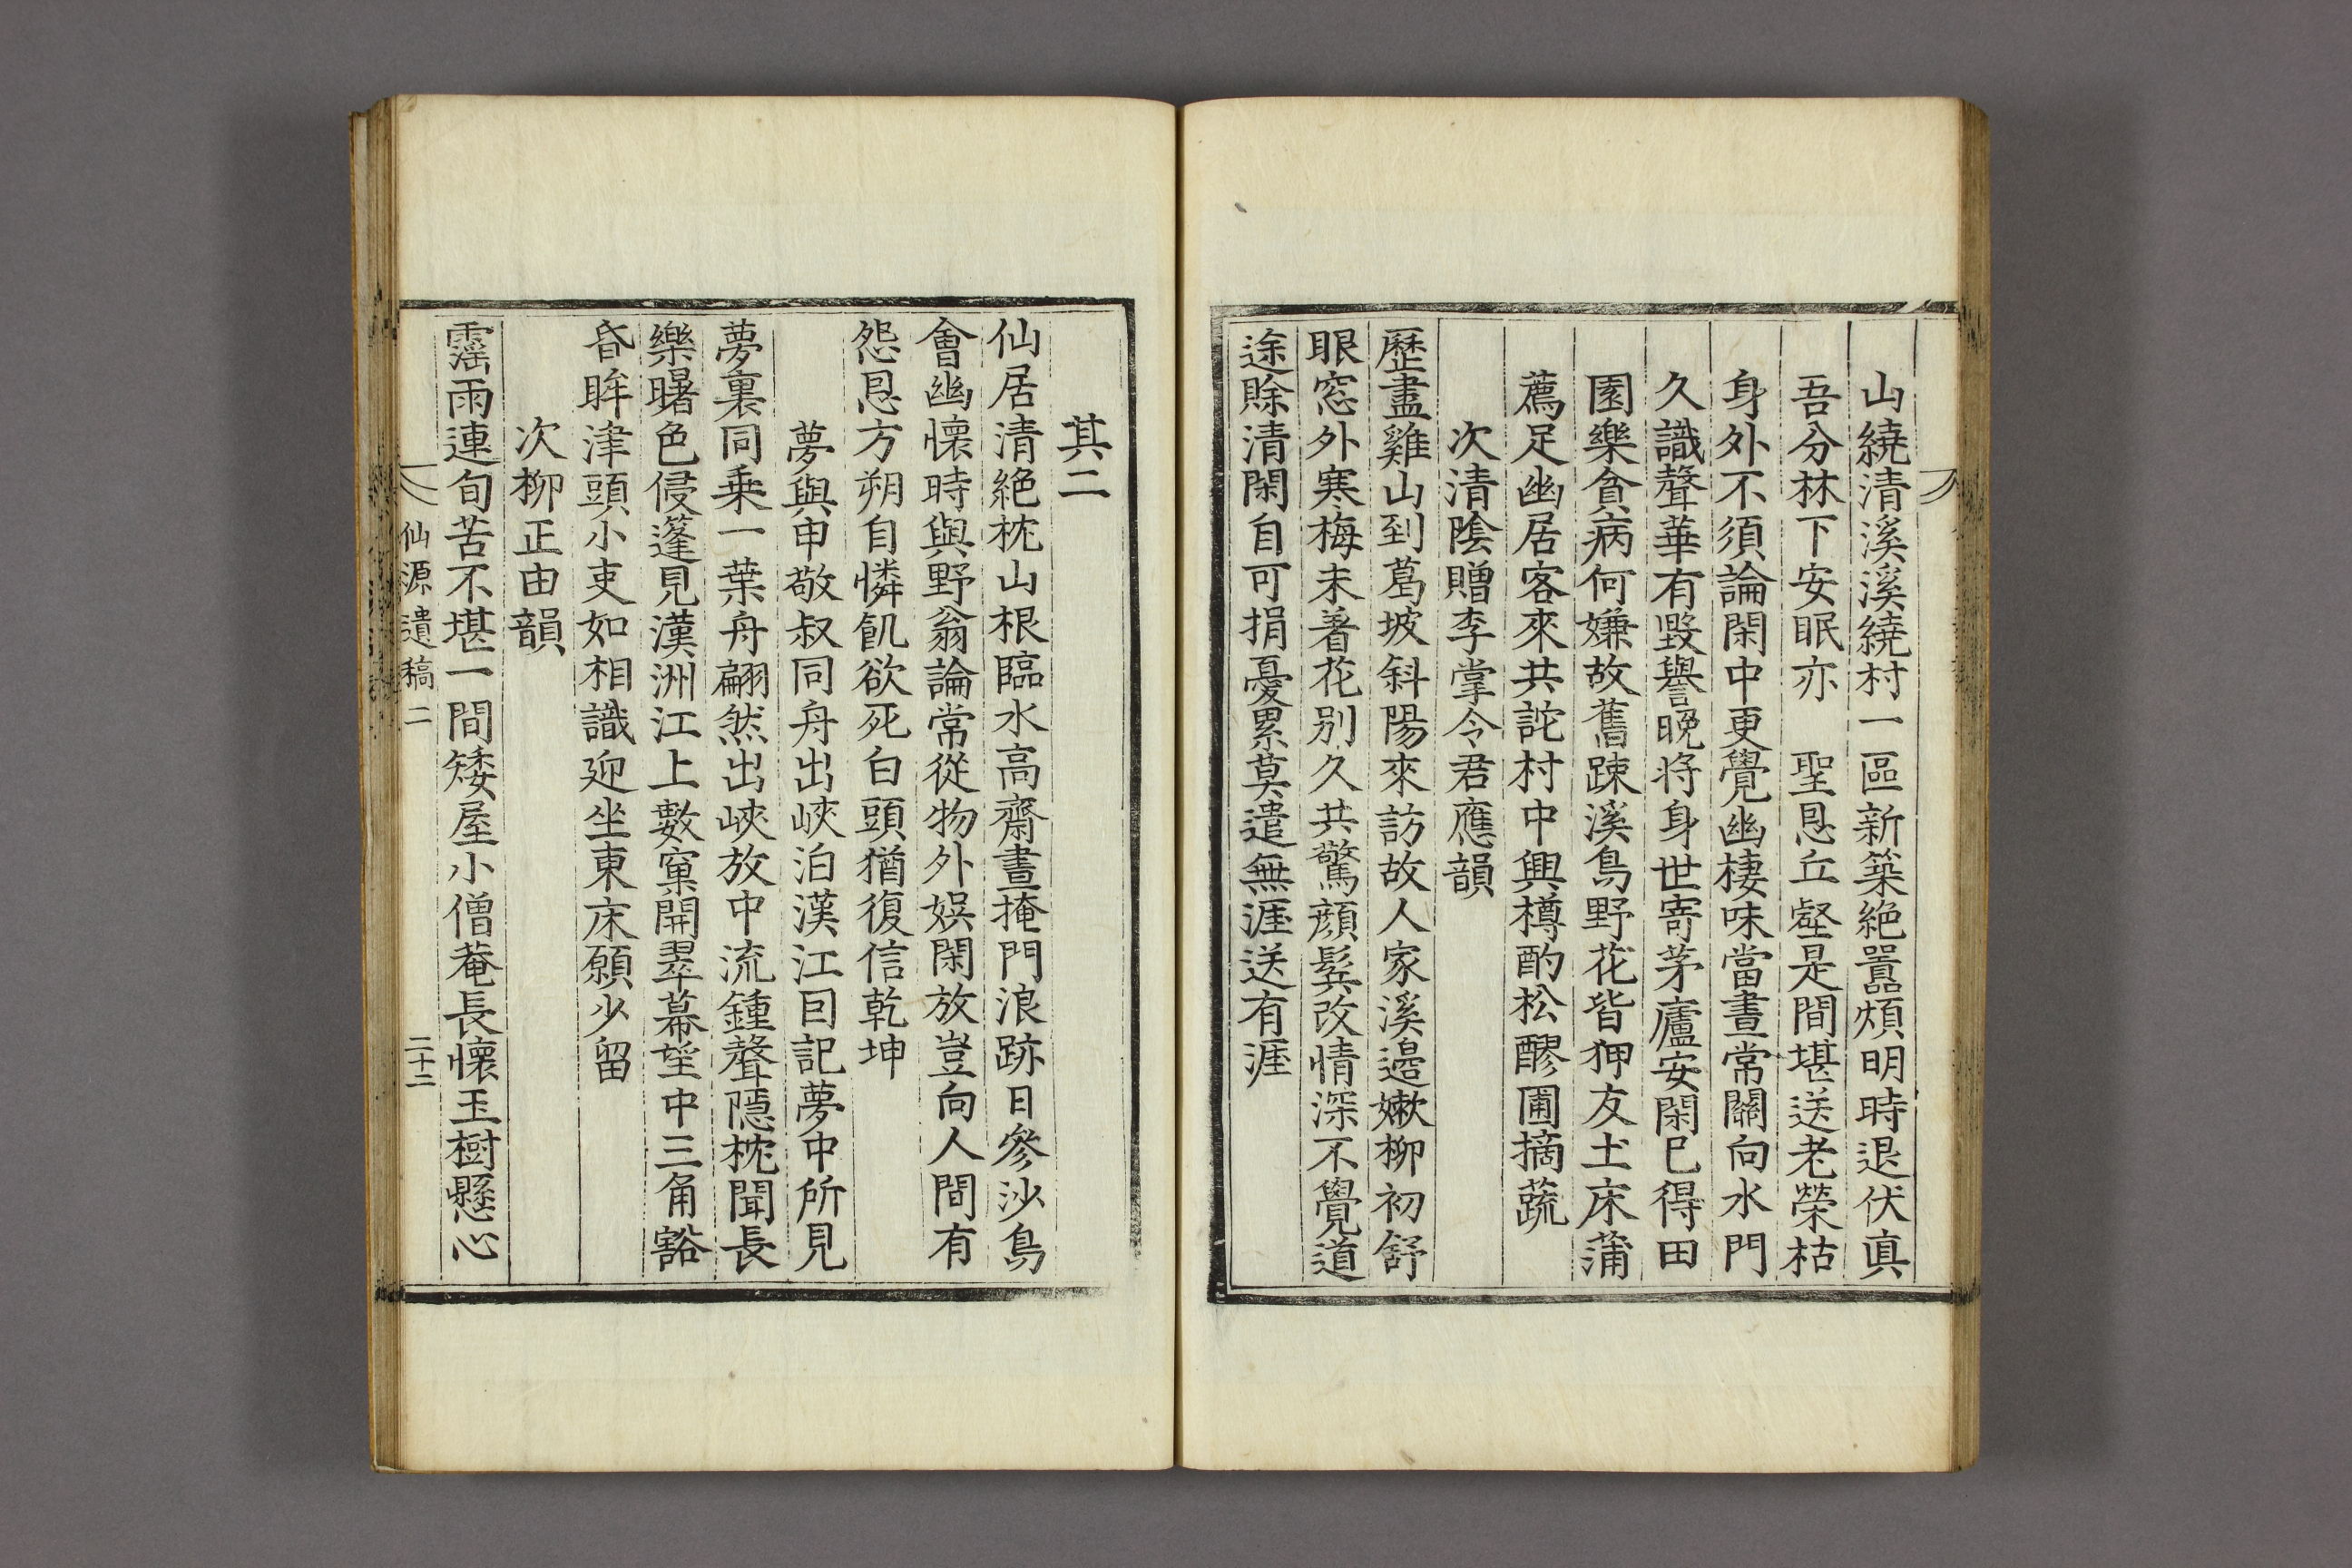 山繞清溪溪繞村一區新築絶囂煩明時退伏真
吾分林下安眠亦　聖恩丘壑是間堪送老榮枯
身外不須論閑中更覺幽棲味當晝常關向水門
久識聲華有毀譽晩將身世寄茅廬安閑已得田
園樂貪病何嫌故舊踈溪鳥野花皆狎友土床蒲
薦足幽居客來共詫村中興樽酌松醪圃摘蔬
次清陰贈李掌令君應韻
歷盡雞山到葛坡斜陽來訪故人家溪邊嫩柳初舒
眼窓外寒梅未着花別久共驚顔髮改情深不覺道
途賖清閑自可捐憂累莫遣無涯送有涯
其二
仙居清絶枕山根臨水高齋晝掩門浪跡日參沙鳥
會幽懷時與野翁論常從物外娛閑放豈向人間有
怨恩方朔自憐飢欲死白頭猶復信乾坤
夢與申敬叔同舟出峽泊漢江因記夢中所見
夢裏同乗一葉舟翩然出峽放中流鍾聲隱枕聞長
樂曙色侵蓬見漢洲江上數窠開翠幕望中三角豁
昏眸津頭小吏如相識迎坐東床願少留
次柳正由韻
霪雨連旬苦不堪一間矮屋小僧菴長懷玉樹懸心
仙源遺稿二
二十二